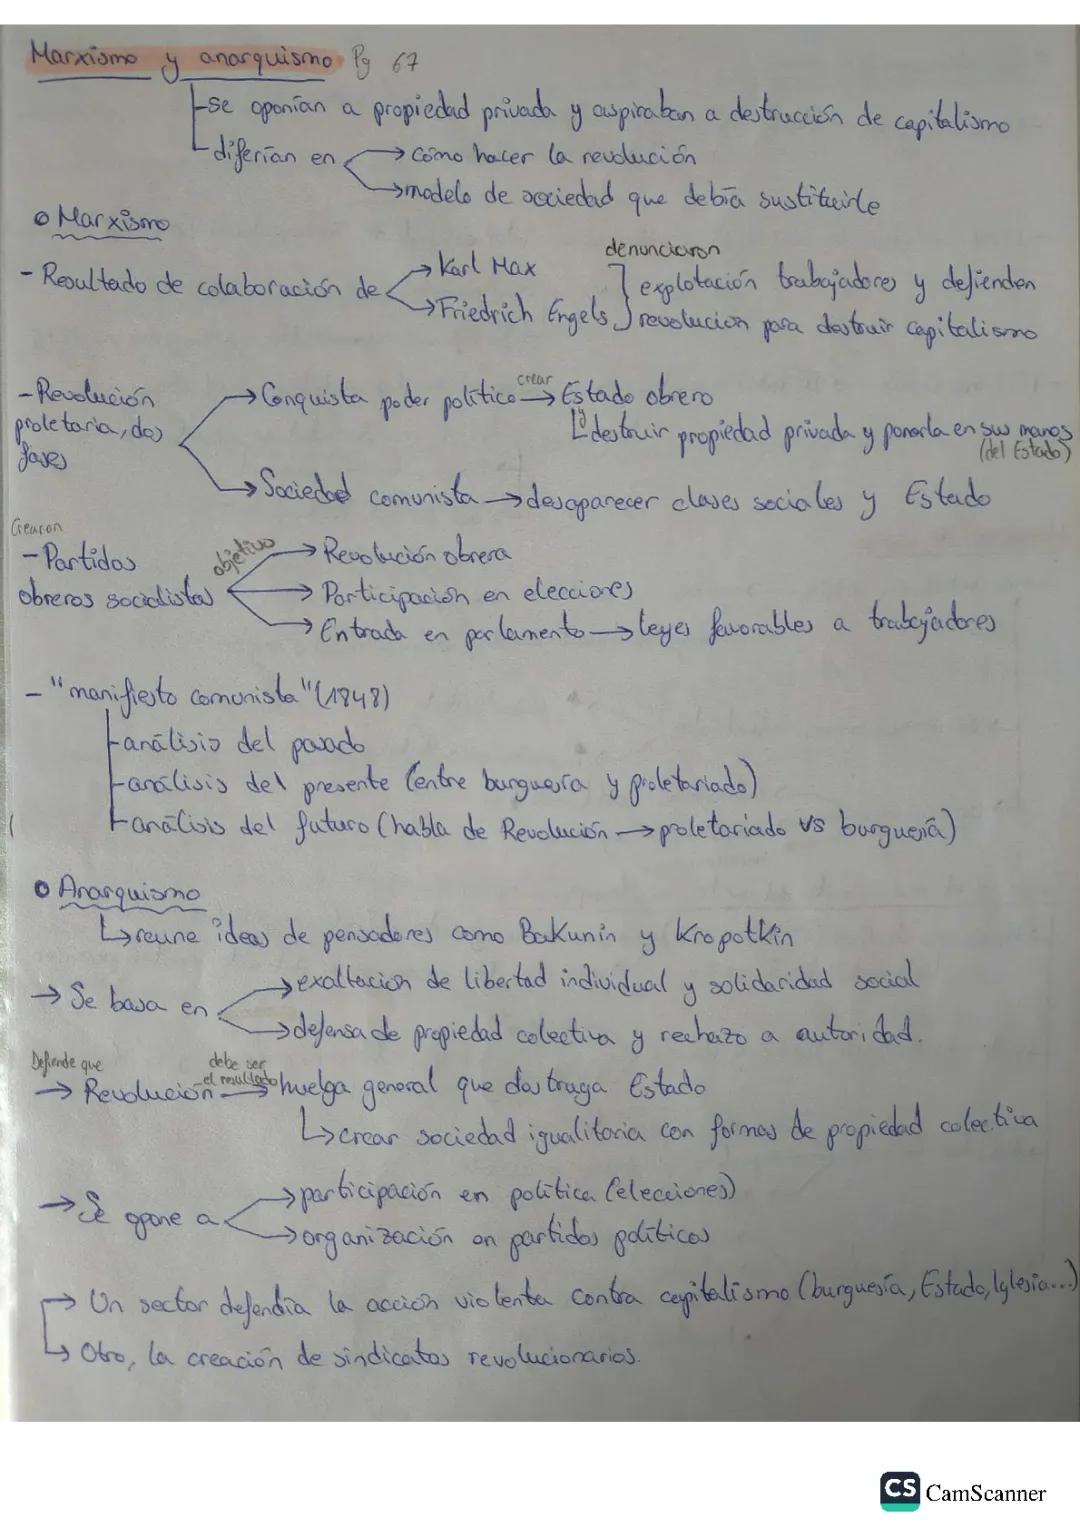 Marxismo y anarquismo Pg 67
-se oponían a propiedad privada y aspiraban a destrucción de capitalismo
-diferían en → cómo hacer la revolución
→ modelo de sociedad que debía sustituirle
o Marxismo
denunciaron
- Resultado de colaboración de → Karl Max
→ Friedrich Engels
explotación trabajadores y defienden
revolución para destruir capitalismo
- Revolución proletaria, dos fases
→ Conquista poder político crear → Estado obrero
↳ destruir propiedad privada y ponerla en sus manos
(del Estado)
→ Sociedad comunista → desaparecer clases sociales y Estado
Crearon
- Partidos obreros socialistas
objetivo → Revolución obrera
→ Participación en elecciones
→ Entrada en parlamento → leyes favorables a trabajadores
- "manifiesto comunista" (1848)
- análisis del pasado
- análisis del presente (entre burguesía y proletariado)
- análisis del futuro (habla de Revolución → proletariado vs burguesía)
o Anarquismo
↳ reune ideas de pensadores como Bakunin y Kropotkin
→ Se basa en → exaltación de libertad individual y solidaridad social
→ defensa de propiedad colectiva y rechazo a autoridad.
Defiende que
debe ser
el resultado
→ Revolución → huelga general que destruya Estado
↳ crear sociedad igualitaria con formas de propiedad colectiva
→ Se opone a → participación en política (elecciones)
→ organización en partidos políticos
→ Un sector defendía la acción violenta contra capitalismo (burguesía, Estado, Iglesia...)
↳ Otro, la creación de sindicatos revolucionarios.
CS CamScanner